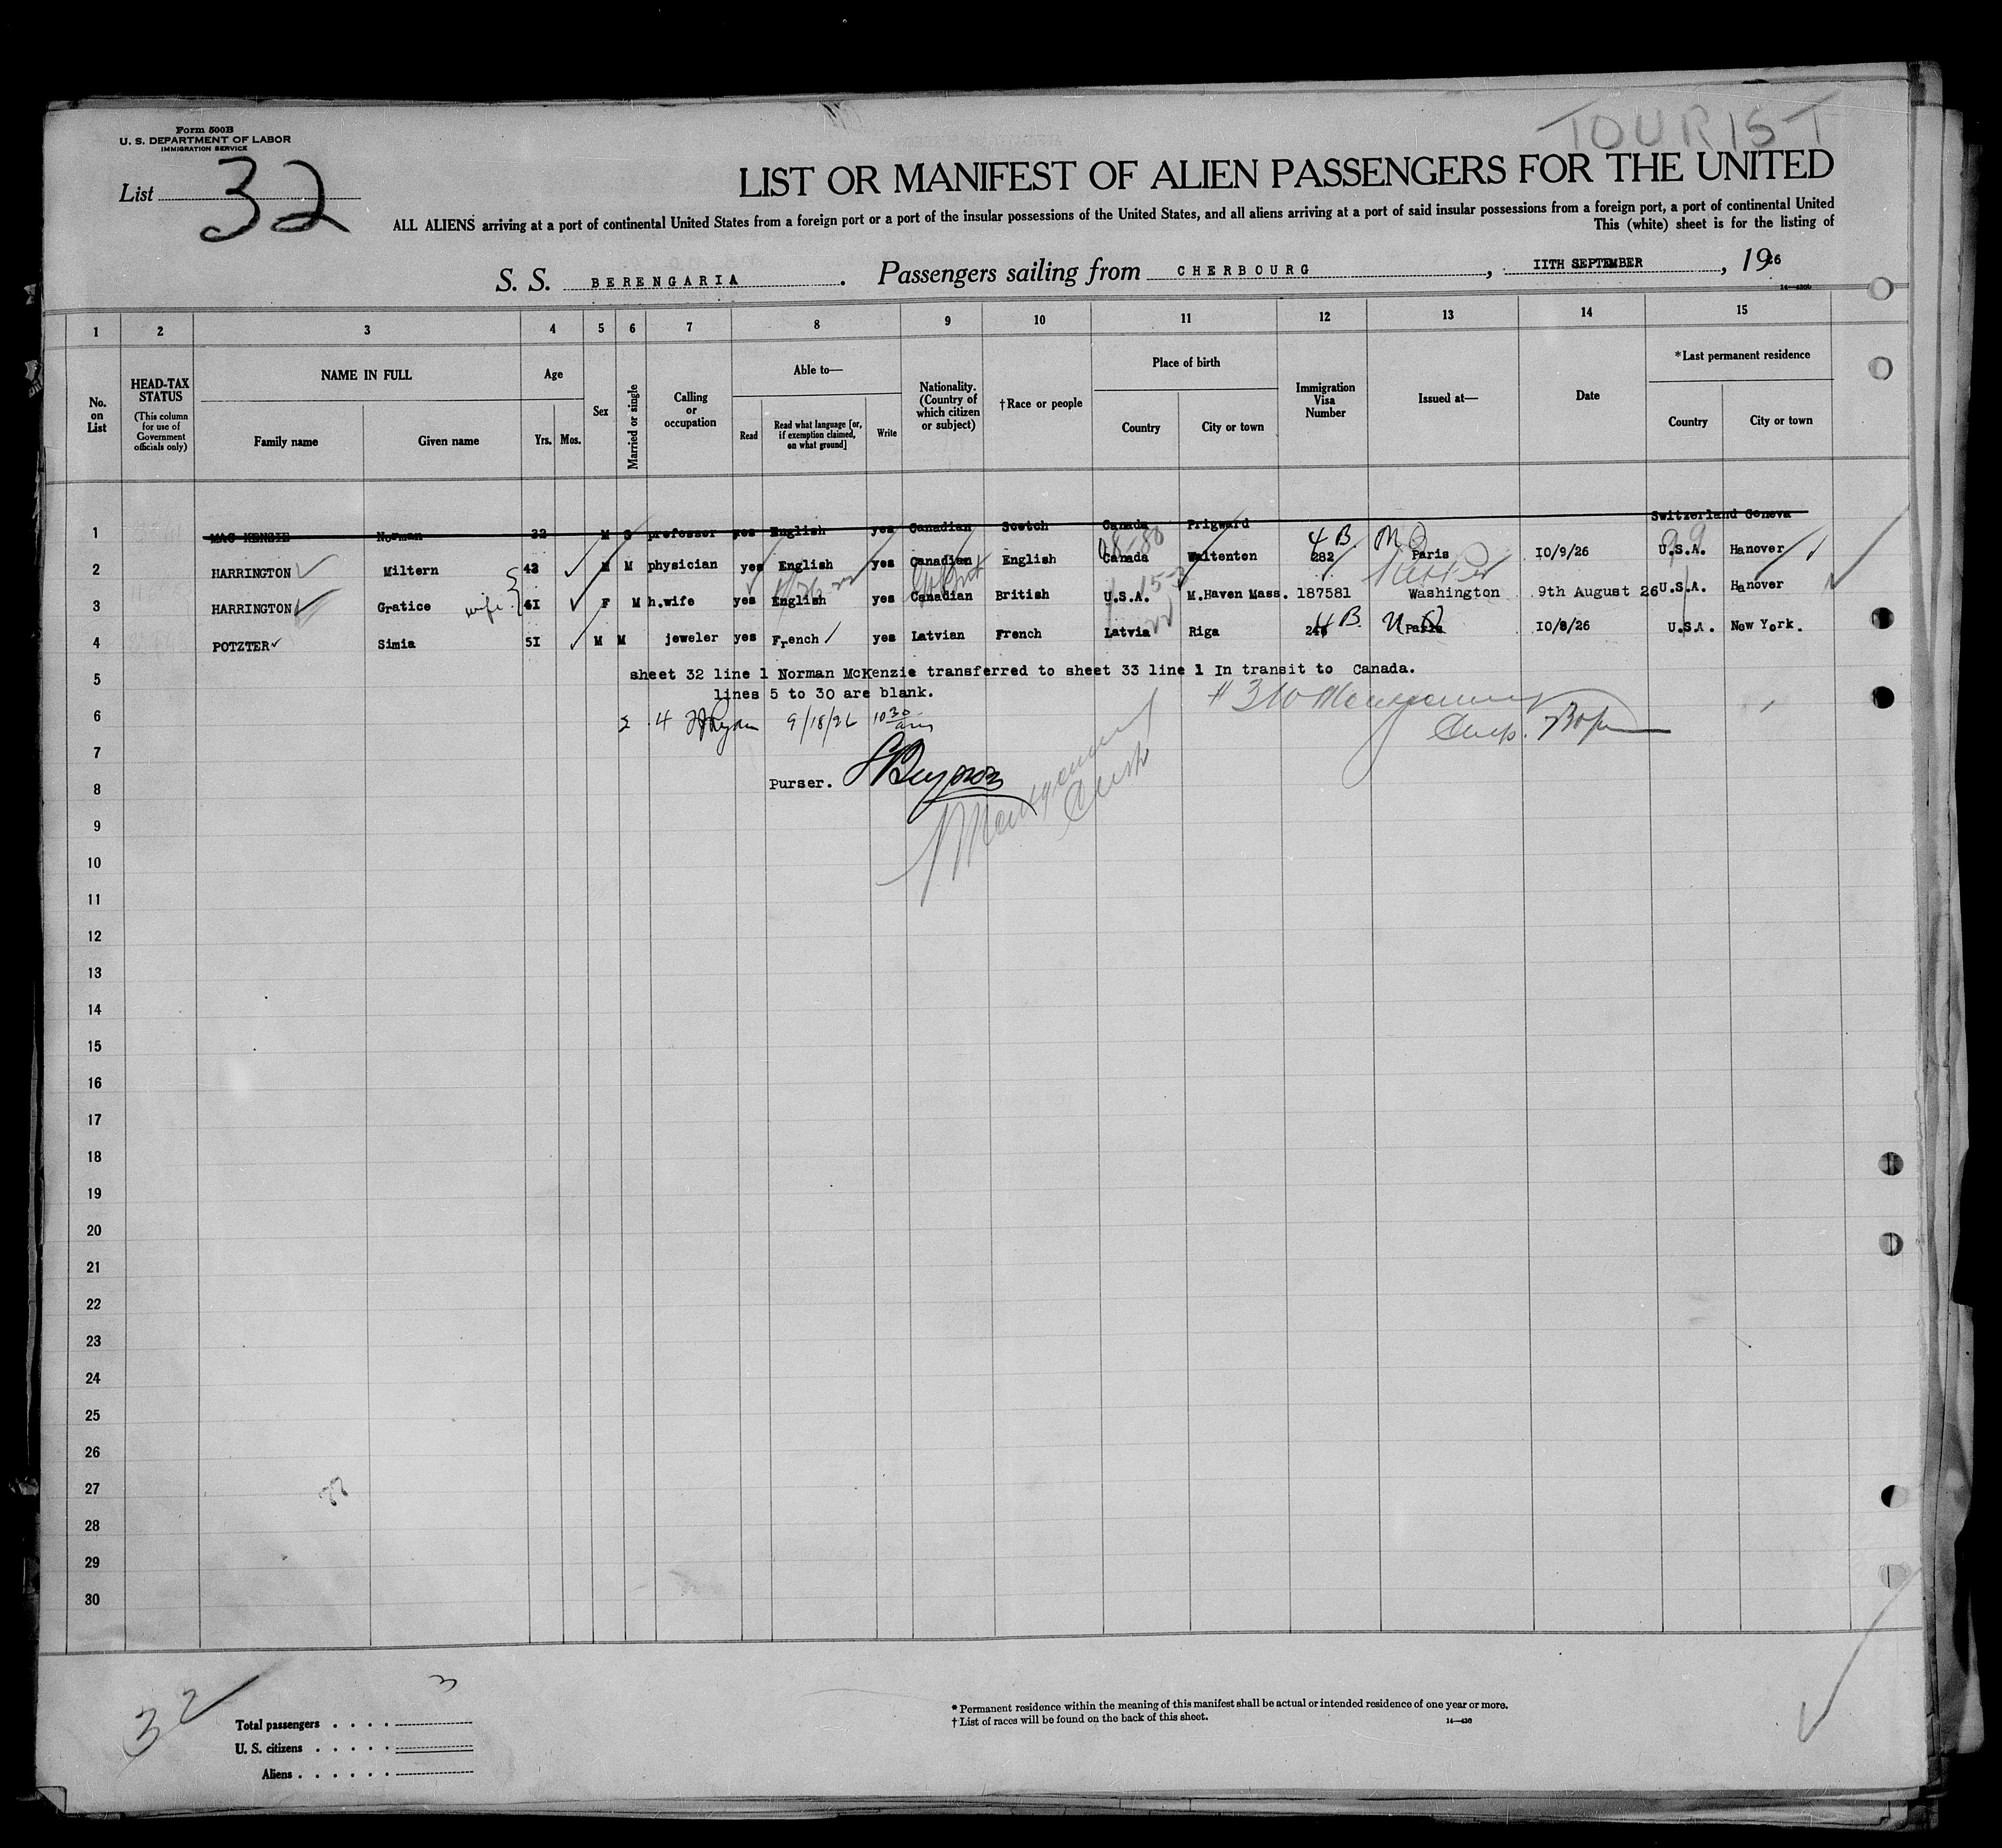 TOURIST
Form 500B
U. S. DEPARTMENT OF LABOR
IMMIGRATION SERVICE
List 32
LIST OR MANIFEST OF ALIEN PASSENGERS FOR THE UNITED
ALL ALIENS arriving at a port of continental United States from a foreign port or a port of the insular possessions of the United States, and all aliens arriving at a port of said insular possessions from a foreign port, a port of continental United
This (white) sheet is for the listing of
S. S. BERENGARIA. Passengers sailing from CHERBOURG, IITH SEPTEMBER, 1926
14—430b
1 2 3 4 5 6 7 8 9 10 11 12 13 14 15
No. on List
HEAD-TAX STATUS (This column for use of Government officials only)
NAME IN FULL
Family name Given name
Age
Yrs. Mos.
Sex
Married or single
Calling or occupation
Able to—
Read Read what language [or, if exemption claimed, on what ground] Write
Nationality. (Country of which citizen or subject)
†Race or people
Place of birth
Country City or town
Immigration Visa Number
Issued at—
Date
*Last permanent residence
Country City or town
1 MAC KENZIE Norman 32 M S professor yes English yes Canadian Scotch Canada Prigward Switzerland Geneva
4 B
2 HARRINGTON Miltern 43 M M physician yes English yes Canadian English Canada Waltenten 282 Paris IO/9/26 U.S.A. Hanover
3 HARRINGTON Gratice wife 4I F M h.wife yes English yes Canadian British U.S.A. M.Haven Mass. 187581 Washington 9th August 26 U.S.A. Hanover
4 B
4 POTZTER Simia 5I M M jeweler yes French yes Latvian French Latvia Riga 246 Paris IO/8/26 U.S.A. New York.
5 sheet 32 line 1 Norman McKenzie transferred to sheet 33 line 1 In transit to Canada.
lines 5 to 30 are blank.
6 4 9/18/26 10 30 am
7
8 Purser.
9
10
11
12
13
14
15
16
17
18
19
20
21
22
23
24
25
26
27
28
29
30
32
3
Total passengers
U. S. citizens
Aliens
* Permanent residence within the meaning of this manifest shall be actual or intended residence of one year or more.
† List of races will be found on the back of this sheet.
14—430